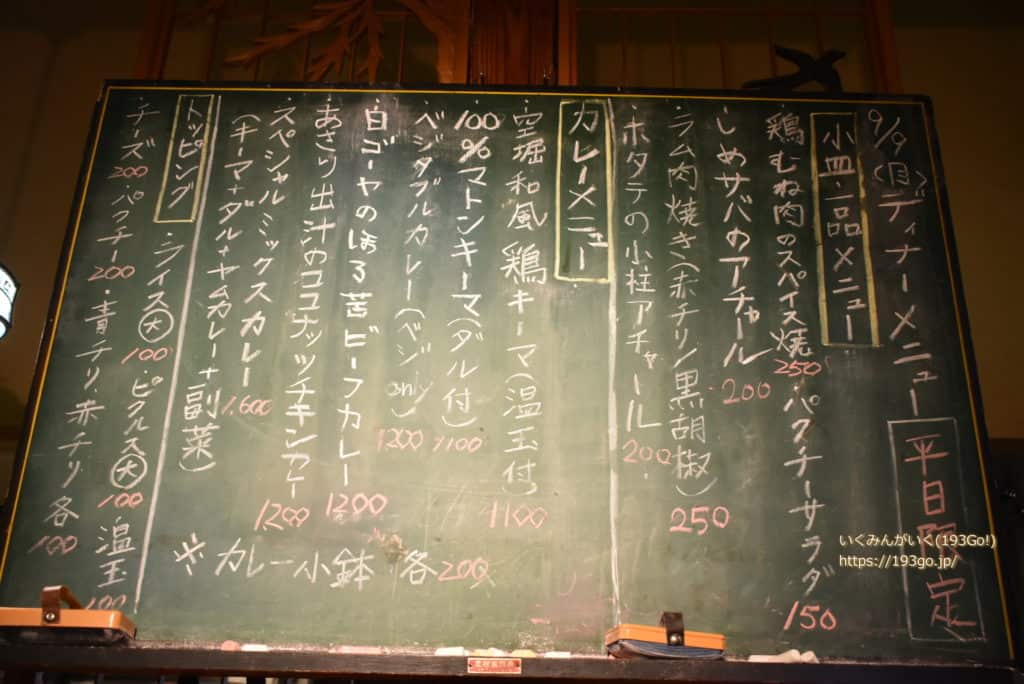 9/9(月)ディナーメニュー
平日限定
小皿・一品メニュー
・鶏むね肉のスパイス焼250・パクチーサラダ150
・しめサバのアチャール200
・ラム肉焼き(赤チリ/黒胡椒)250
・ホタテの小柱アチャール200
カレーメニュー
・空堀和風鶏キーマ(温玉付)1100
・100%マトンキーマ(ダル付)1100
・ベジタブルカレー(ベジonly)1200
・白ゴーヤのほろ苦ビーフカレー1200
・あさり出汁のココナッツチキンカレー1200
・スペシャルミックスカレー1,600
(キーマ+ダル+ヤムカレー+副菜)
※カレー小鉢 各200
トッピング
・ライス(大)100・ピクルス(大)100・温玉100
・チーズ200・パクチー200・青チリ、赤チリ各100
いくみんがいく(193Go!)
https://193go.jp/